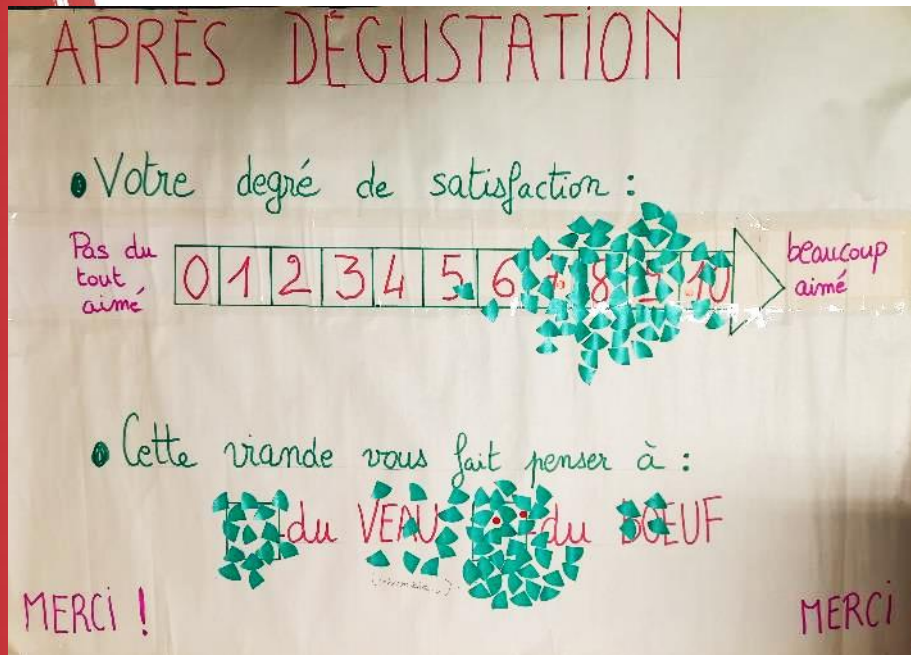 APRÈS DÉGUSTATION
• Votre degré de satisfaction :
Pas du tout aimé 0 1 2 3 4 5 6 8 9 10 beaucoup aimé
• Cette viande vous fait penser à :
du VEAU du BOEUF
MERCI ! MERCI